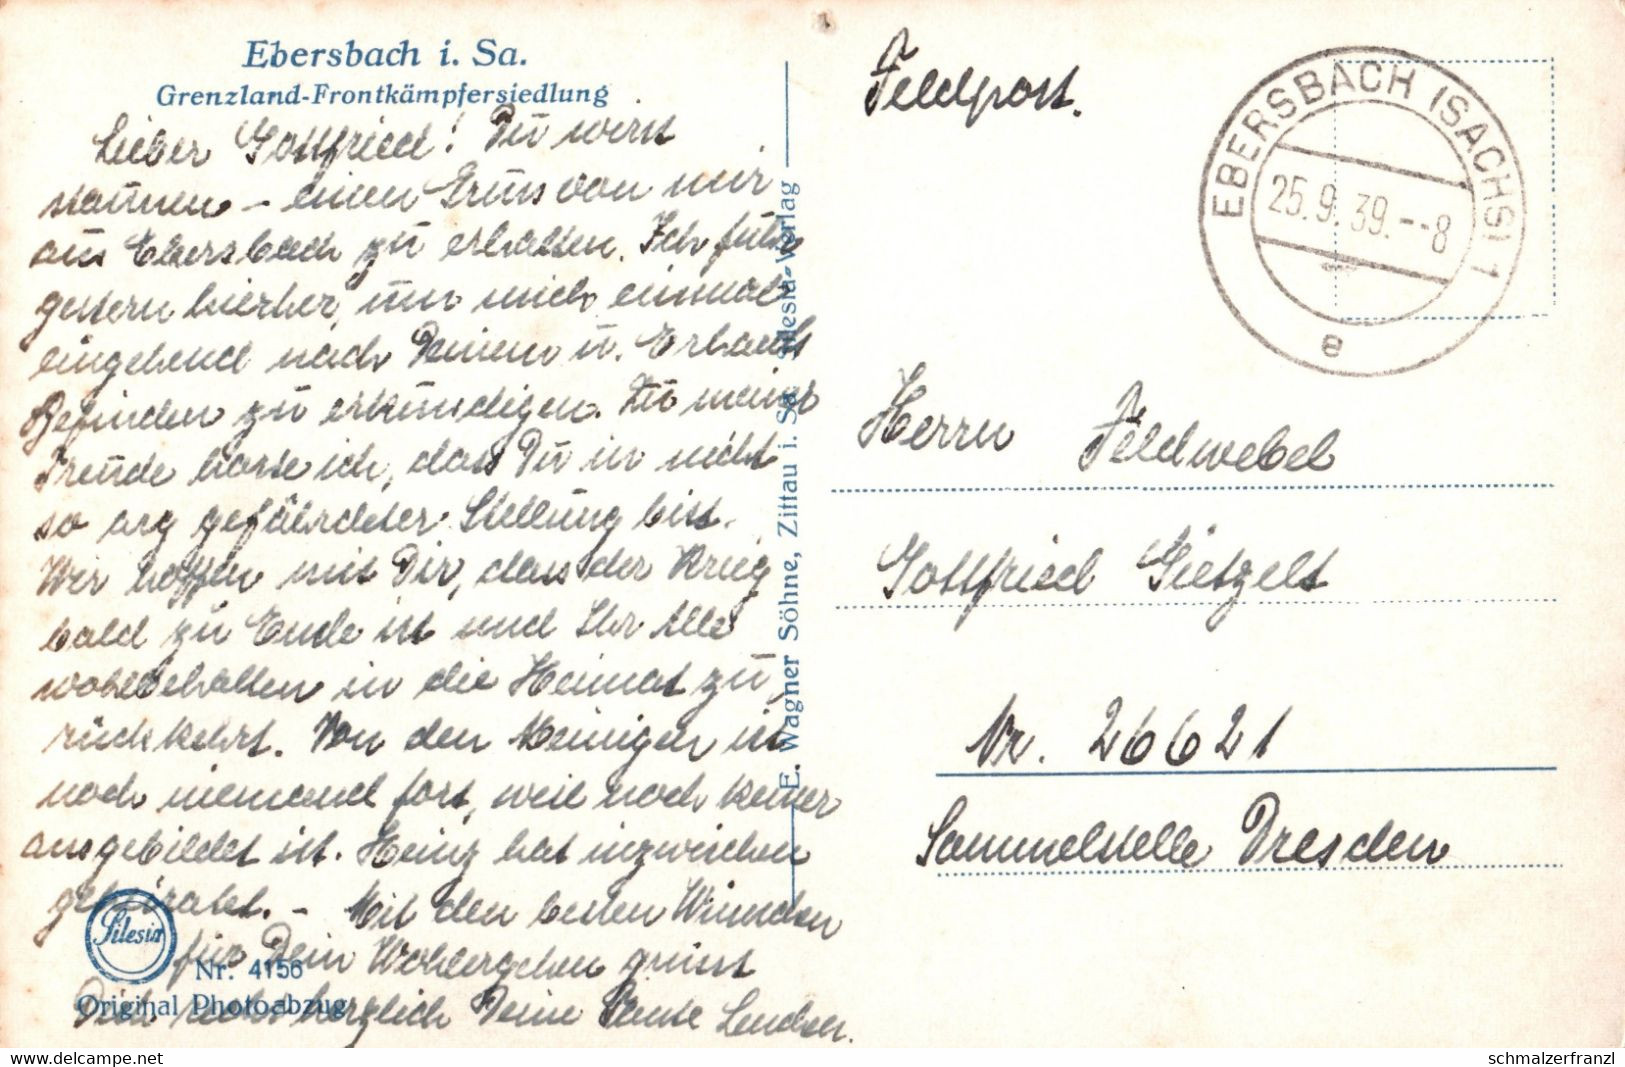 Ebersbach i. Sa.
Grenzland-Frontkämpfersiedlung
Lieber Gottfried! Du wirst
staunen – einen Gruss von mir
aus Ebersbach zu erhalten. Ich fuhr
gestern hierher, um mich einmal
eingehend nach Deinem u. Erhards
Befinden zu erkundigen. Zu meiner
Freude hörte ich, dass Du in nicht
so arg gefährdeter Stellung bist.
Wir hoffen mit Dir, dass der Krieg
bald zu Ende ist und Ihr Alle
wohlbehalten in die Heimat zu
rückkehrt. Von den Meinigen ist
noch niemand fort, weil noch keiner
ausgebildet ist. Heinz hat inzwischen
geheiratet. – Mit den besten Wünschen
für Dein Wohlergehen grüsst
Dich recht herzlich Deine Tante
Silesia
Nr. 4156
Original Photoabzug
E. Wagner Söhne, Zittau i. Sa. Silesia-Verlag
Feldpost.
EBERSBACH (SACHS) 1
25.9.39.--8
e
Herrn Feldwebel
Gottfried Gietzelt
Nr. 26621
Sammelstelle Dresden
Powered by delcampe.net
schmalzerfranzl